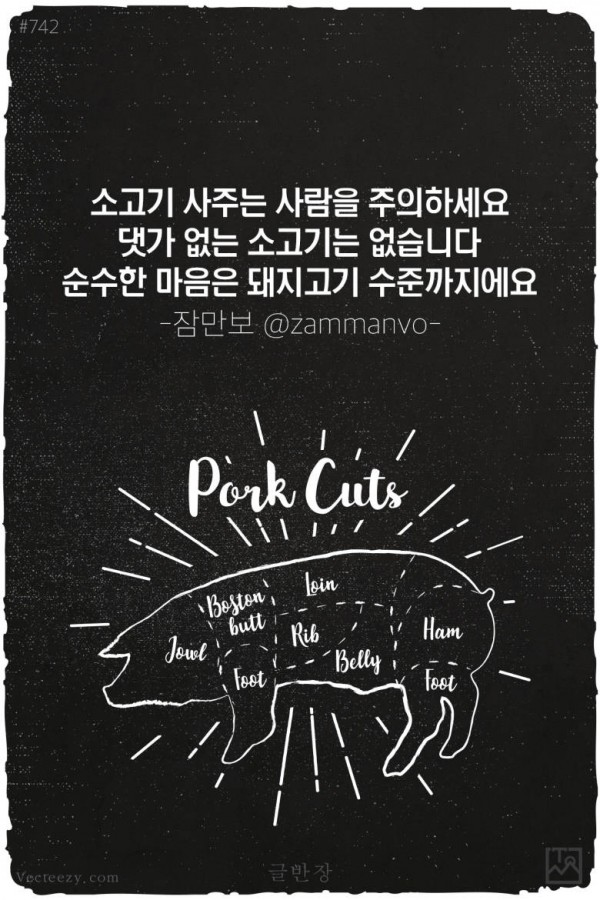 #742
소고기 사주는 사람을 주의하세요
댓가 없는 소고기는 없습니다
순수한 마음은 돼지고기 수준까지에요
-잠만보 @zammanvo-
Pork Cuts
Loin
Boston
butt
Rib
Ham
Jowl
Belly
Foot
Foot
글반장
Vecteezy.com